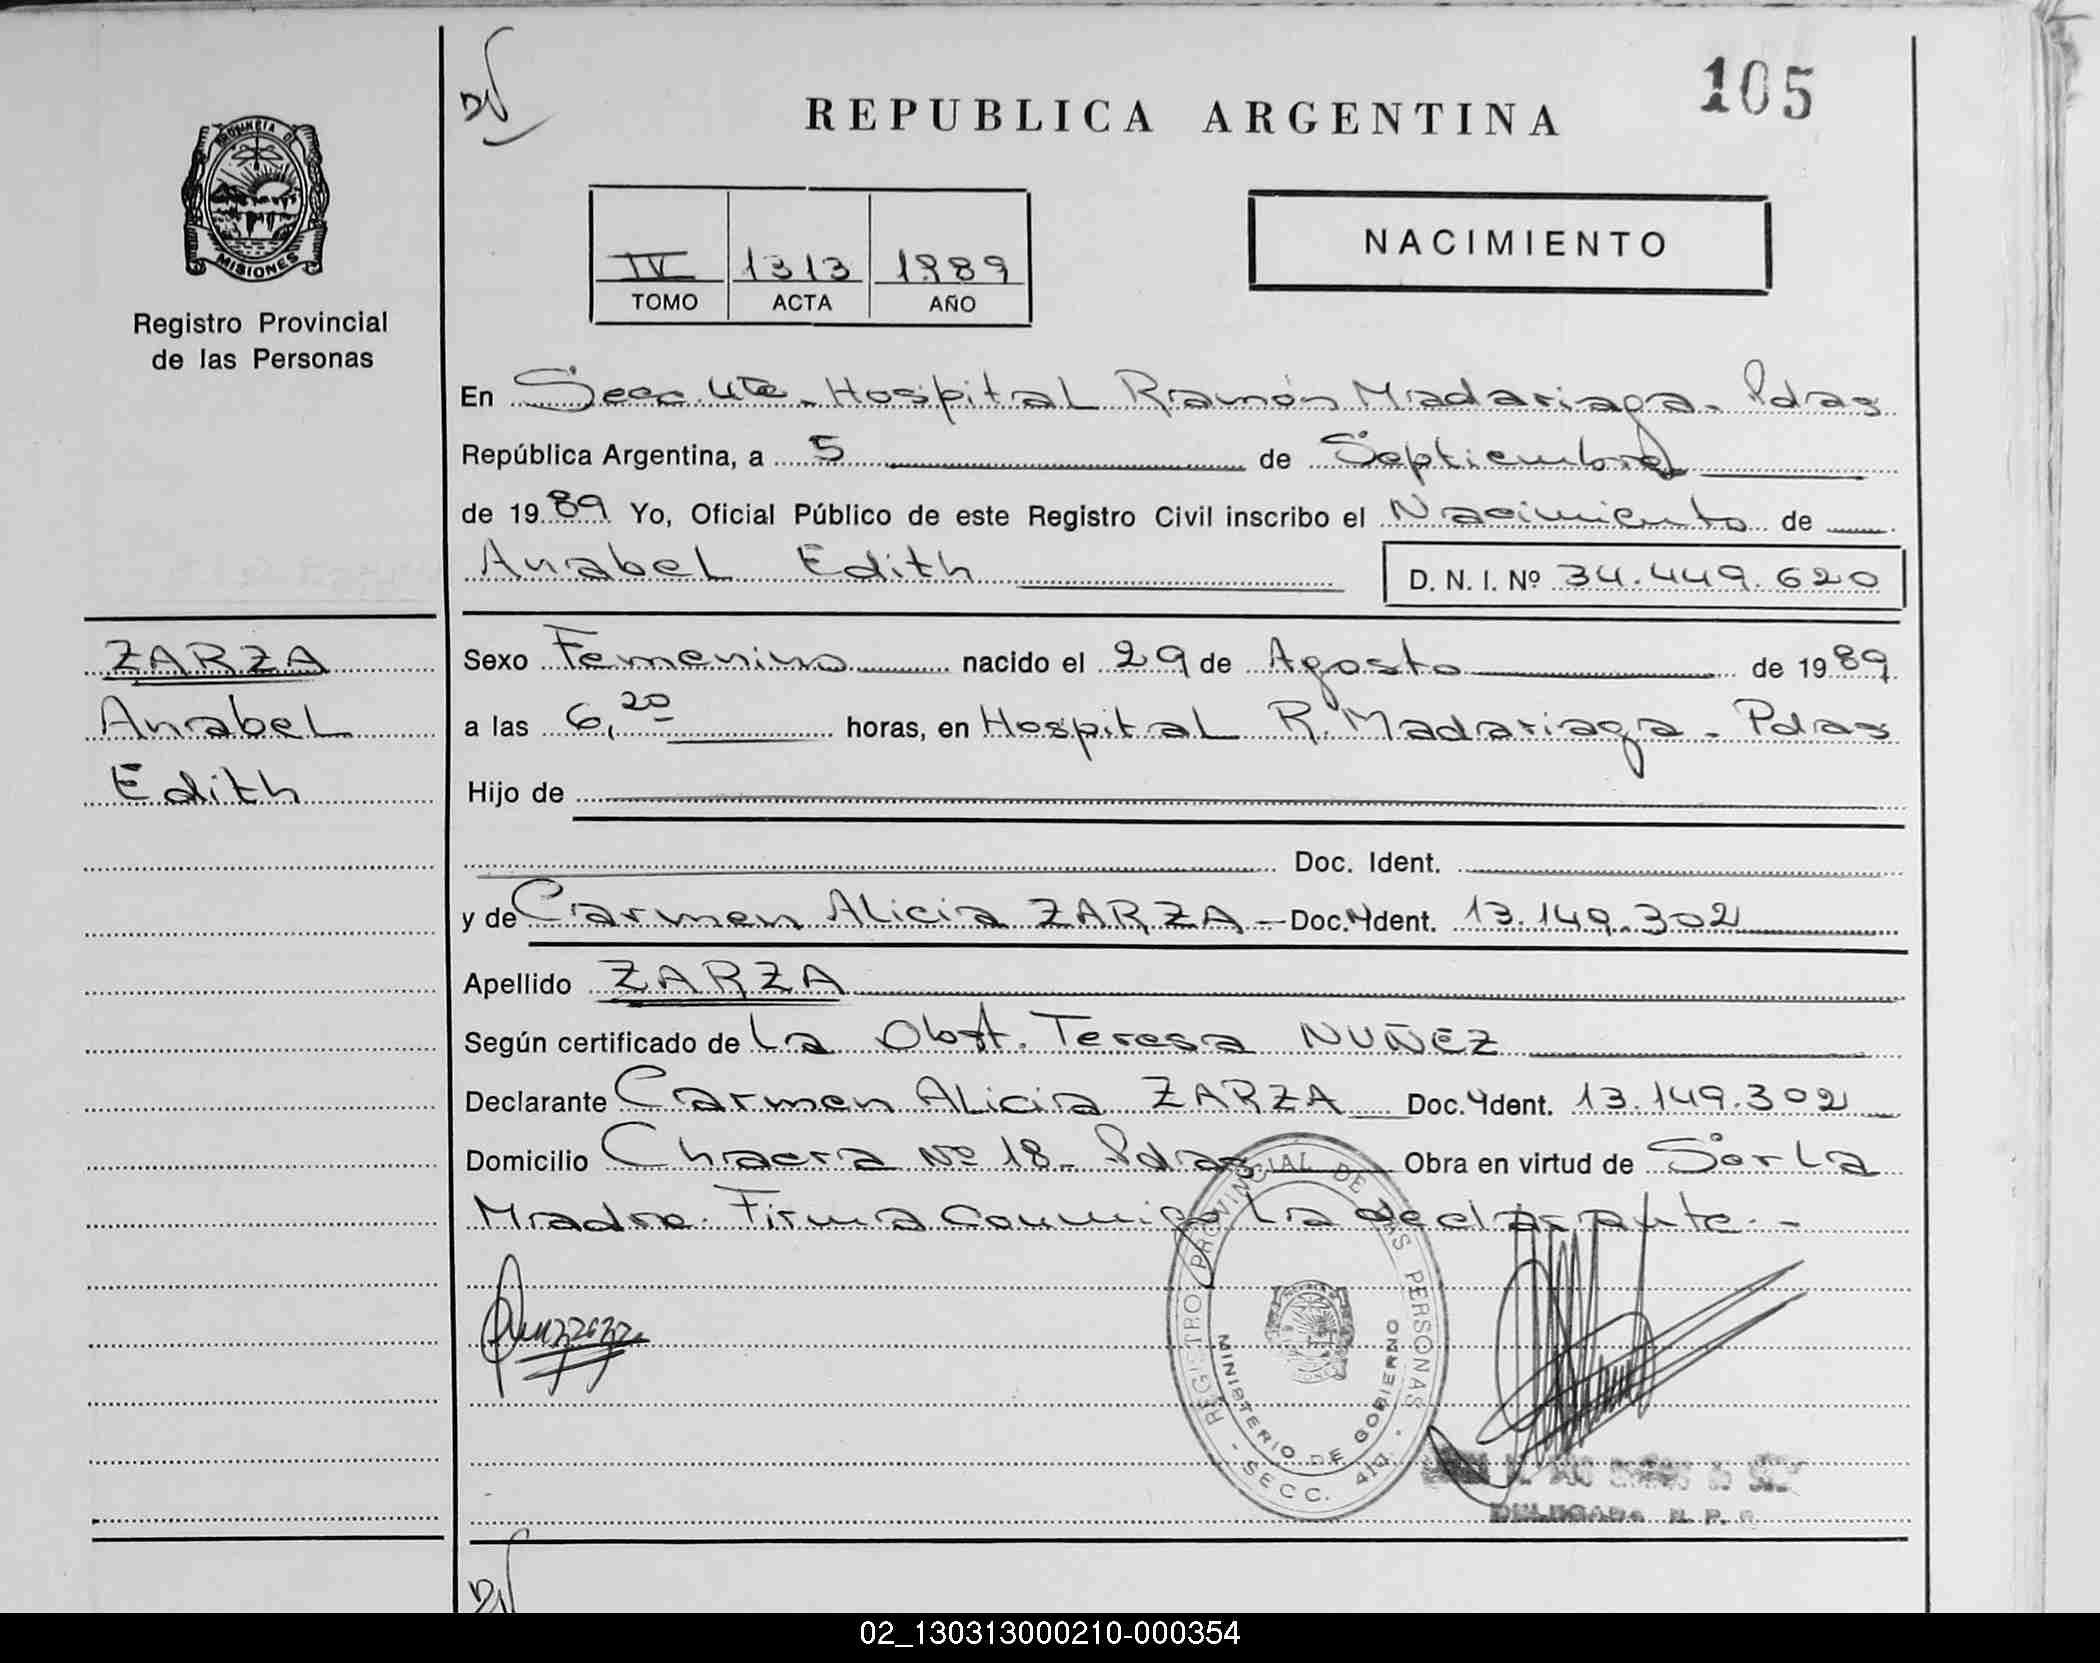 DN
105
REPUBLICA ARGENTINA
PROVINCIA DE
MISIONES
Registro Provincial
de las Personas
NACIMIENTO
IV 1313 1989
TOMO ACTA AÑO
En Secc. 4ta. Hospital Ramón Madariaga. Pdas
República Argentina, a 5 de Septiembre
de 1989 Yo, Oficial Público de este Registro Civil inscribo el Nacimiento de
Anabel Edith D. N. I. Nº 34.449.620
ZARZA
Anabel
Edith
Sexo Femenino nacido el 29 de Agosto de 1989
a las 6,20 horas, en Hospital R. Madariaga - Pdas
Hijo de
Doc. Ident.
y de Carmen Alicia ZARZA - Doc. Ident. 13.149.302
Apellido ZARZA
Según certificado de La Obst. Teresa NUÑEZ
Declarante Carmen Alicia ZARZA Doc. Ident. 13.149.302
Domicilio Chacra Nº 18 - Pdas Obra en virtud de Ser La
Madre. Firma conmigo La declarante. -
REGISTRO PROVINCIAL DE LAS PERSONAS
MINISTERIO DE GOBIERNO
- SECC. 4ta. -
DELEGADA R. P. P.
DN
02_130313000210-000354